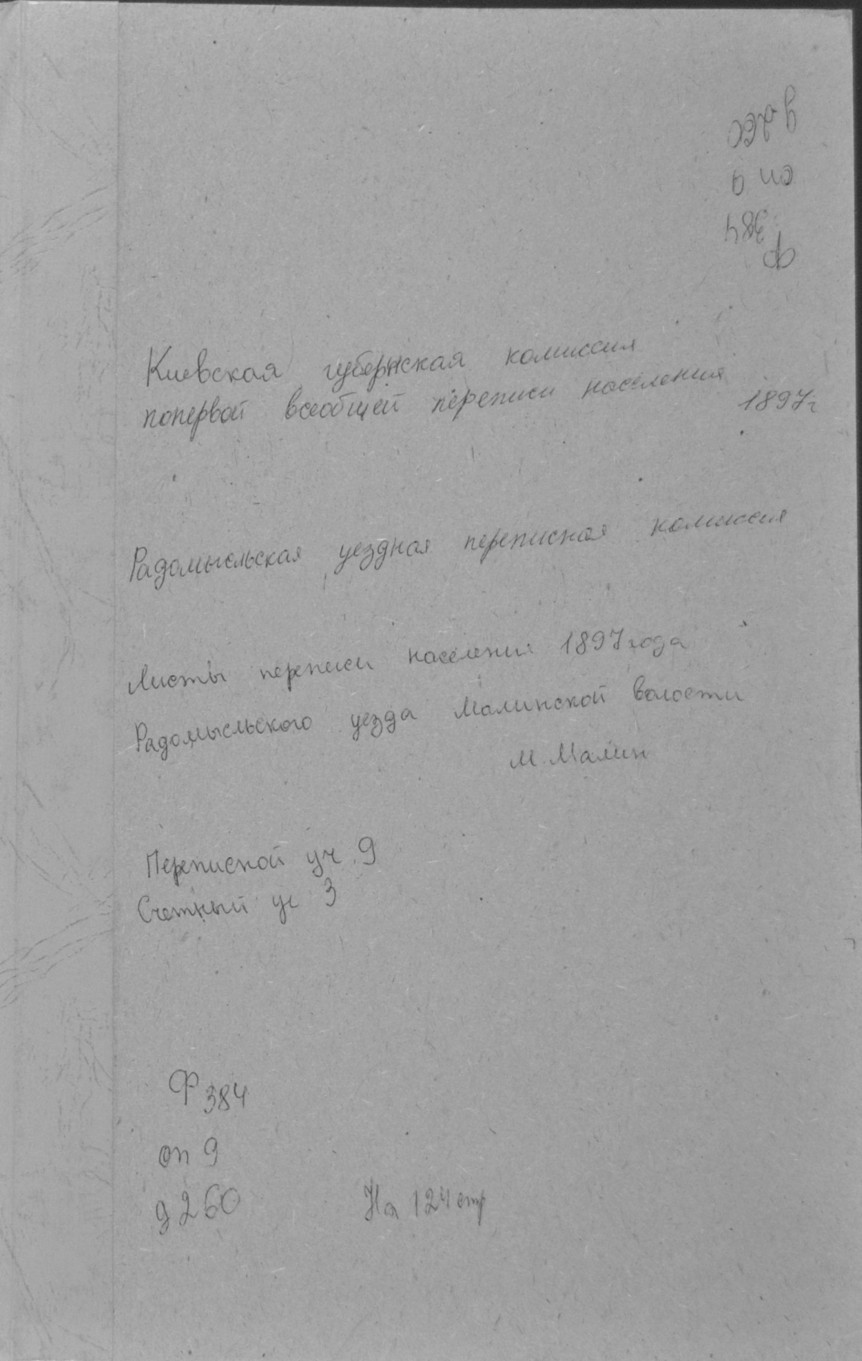 ф 384
оп 9
д 260
Киевская губернская комиссия
попервой всеобщей переписи населения 1897г
Радомысльская уездная переписная комиссия
Листы переписи населения 1897 года
Радомысльского уезда Малинской волости
М. Малин
Переписной уч. 9
Счетный уч 3
Ф 384
оп 9
д 260 На 124 стр